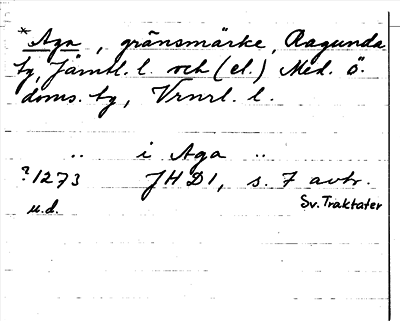 * Aga, gränsmärke, Ragunda
tg, Jämtl. l. och (el.) Med. ö.
doms. tg, Vrnrl. l.
.. i Aga ..
?1273 JHD1, s. 7 avtr.
u.d. Sv. Traktater